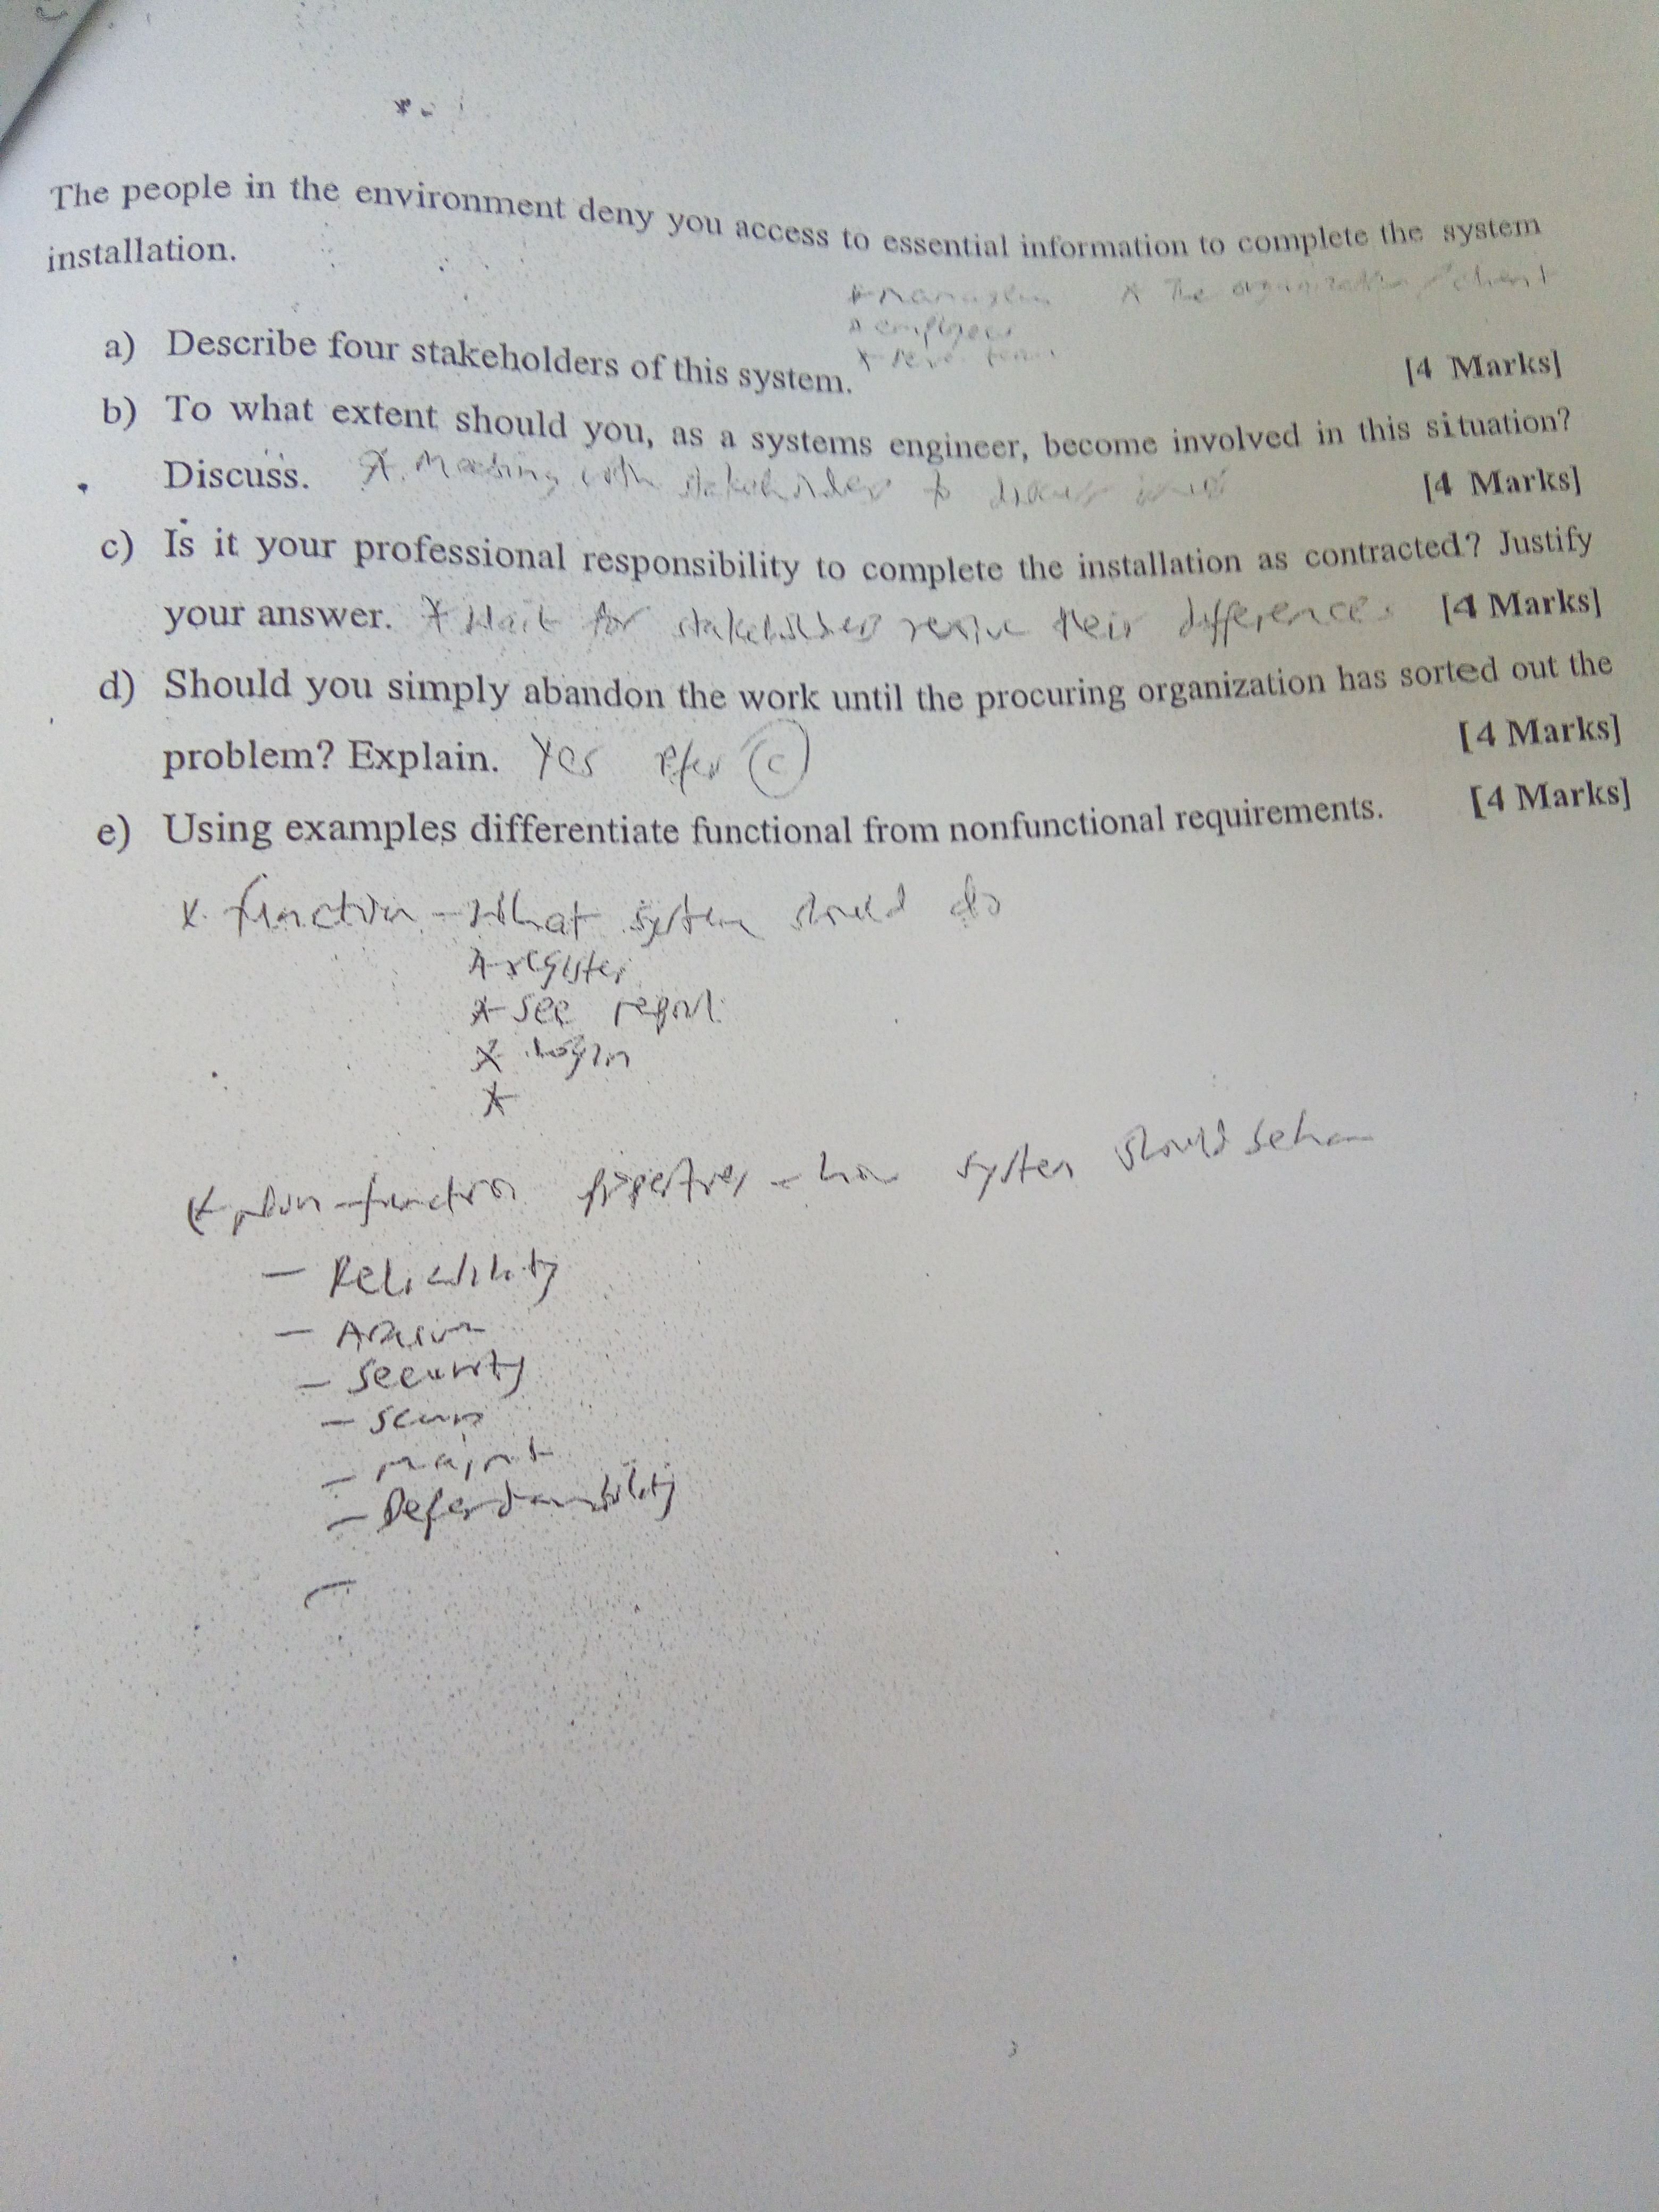 The people in the environment deny you access to essential information to complete the system
installation.
* The organization / client
* employees
a) Describe four stakeholders of this system. [4 Marks]
b) To what extent should you, as a systems engineer, become involved in this situation?
Discuss. * Meeting with stakeholders to discuss [4 Marks]
c) Is it your professional responsibility to complete the installation as contracted? Justify
your answer. * Wait for stakeholders resolve their differences [4 Marks]
d) Should you simply abandon the work until the procuring organization has sorted out the
problem? Explain. Yes refer (c) [4 Marks]
e) Using examples differentiate functional from nonfunctional requirements. [4 Marks]
* function - What system should do
* register
* see report
* login
*
* Non-function properties - how system should
- Reliability
- Security
- maint
3